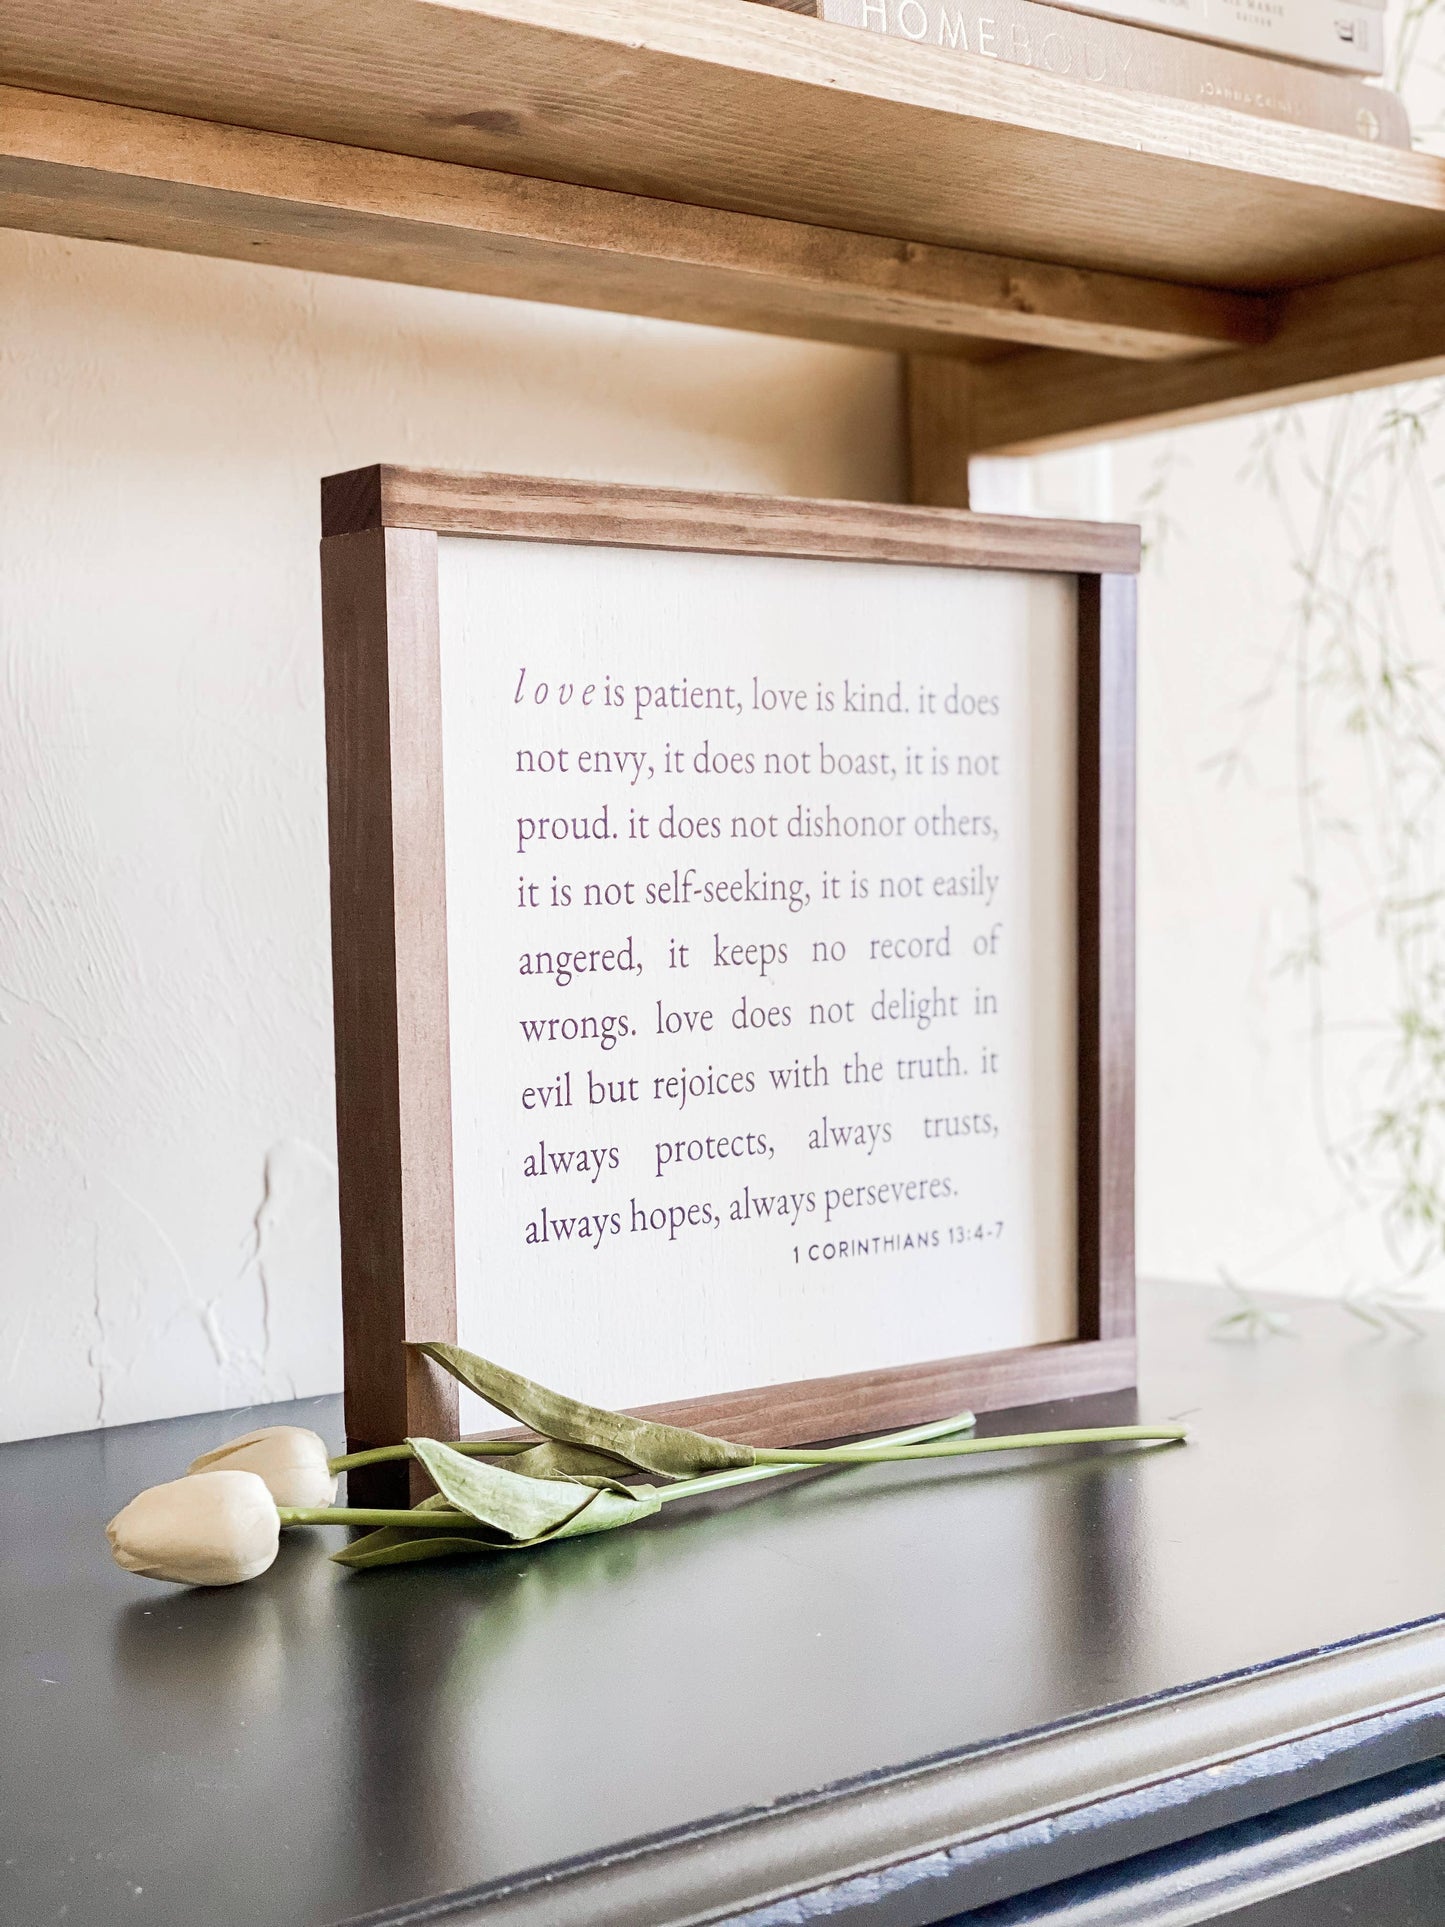 HOMEBODY
JOANNA GAINES
love is patient, love is kind. it does
not envy, it does not boast, it is not
proud. it does not dishonor others,
it is not self-seeking, it is not easily
angered, it keeps no record of
wrongs. love does not delight in
evil but rejoices with the truth. it
always protects, always trusts,
always hopes, always perseveres.
1 CORINTHIANS 13:4-7